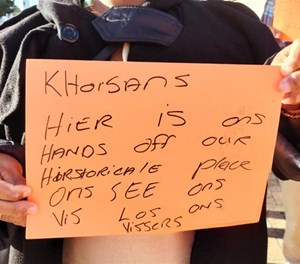 KHOISANS
HIER IS ONS
HANDS OFF OUR
HORSTORICALE PLACE
ONS SEE ONS
VIS LOS ONS
VISSERS